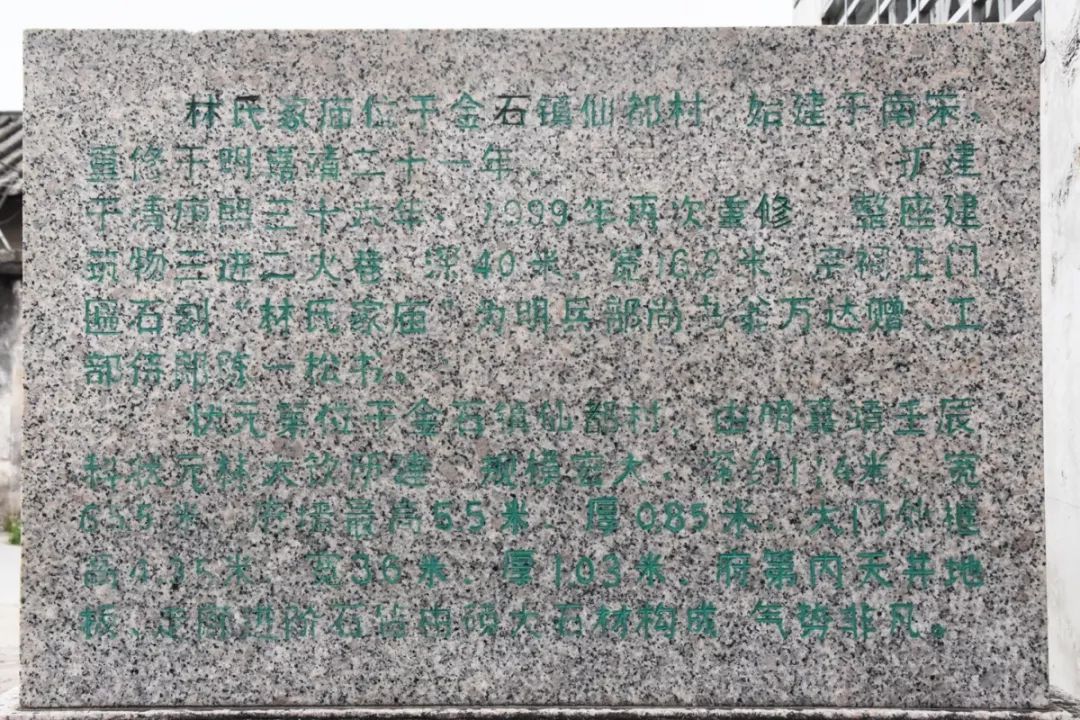 林氏家庙位于金石镇仙都村 始建于南宋,
重修于明嘉靖二十一年. 扩建
于清康熙三十六年, 1999年再次重修 整座建
筑物三进二火巷 深40米, 宽16.2米, 宗祠正门
匾石刻“林氏家庙”为明兵部尚书翁万达赠、工
部侍郎陈一松书。
状元第位于金石镇仙都村, 由明嘉靖壬辰
科状元林大钦所建 规模宏大, 深约114米、宽
65.5米, 墙最高5.5米、厚0.85米, 大门框
高4.35米 宽3.6米、厚1.03米、府第内天井地
板、走廊进阶石皆由硕大石材构成 气势非凡。